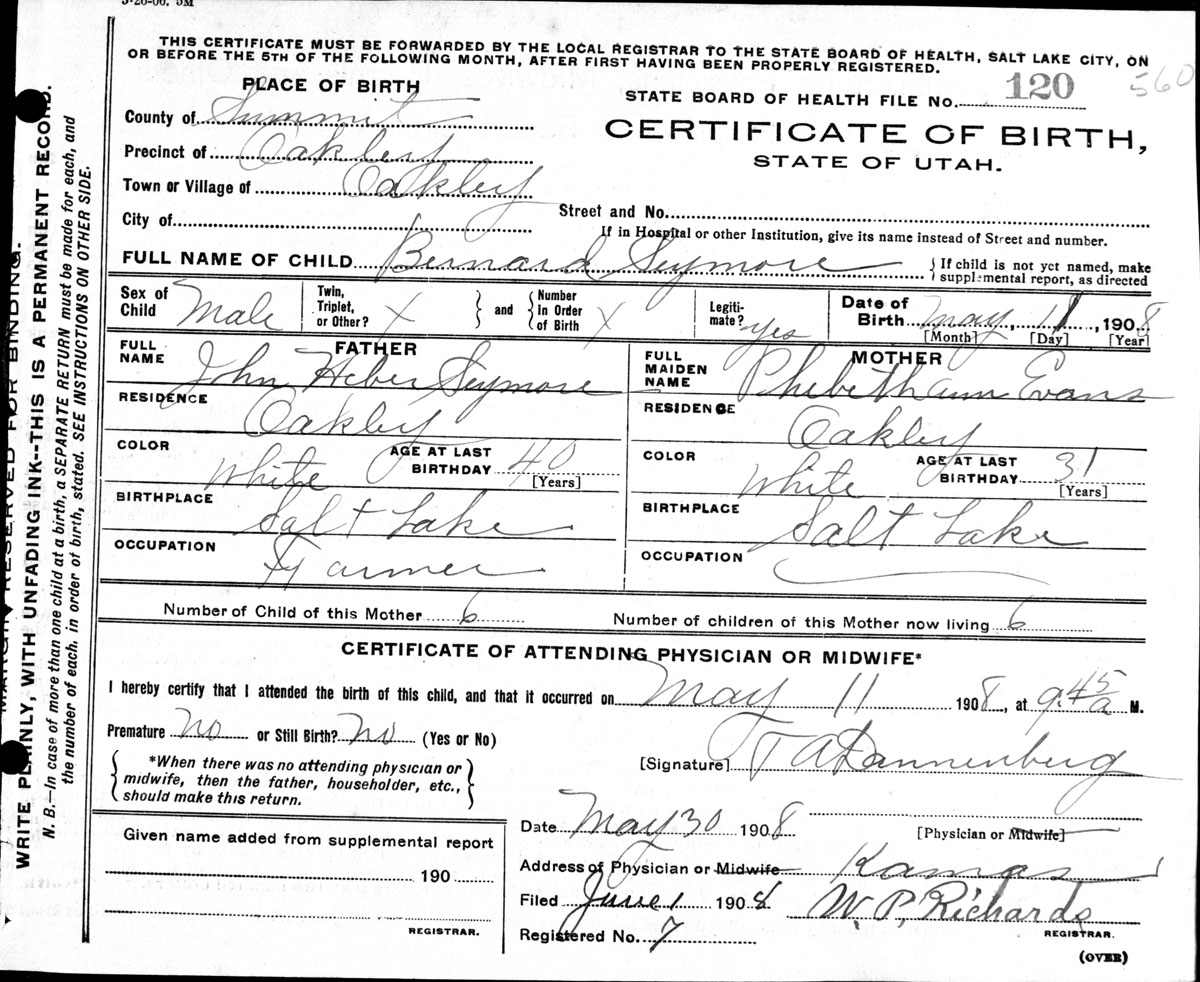 3-26-06. 5M
THIS CERTIFICATE MUST BE FORWARDED BY THE LOCAL REGISTRAR TO THE STATE BOARD OF HEALTH, SALT LAKE CITY, ON
OR BEFORE THE 5TH OF THE FOLLOWING MONTH, AFTER FIRST HAVING BEEN PROPERLY REGISTERED.
PLACE OF BIRTH
STATE BOARD OF HEALTH FILE No. 120 560
County of Summit
CERTIFICATE OF BIRTH,
Precinct of Oakley
STATE OF UTAH.
Town or Village of Oakley
Street and No.
City of
If in Hospital or other Institution, give its name instead of Street and number.
FULL NAME OF CHILD Bernard Seymore { If child is not yet named, make supplemental report, as directed
Sex of Child Male Twin, Triplet, or Other? X } and { Number In Order of Birth X Legiti-mate? yes Date of Birth May, 11, 1908
[Month] [Day] [Year]
FATHER
FULL NAME John Heber Seymore
RESIDENCE Oakley
COLOR White AGE AT LAST BIRTHDAY 40 [Years]
BIRTHPLACE Salt Lake
OCCUPATION Farmer
MOTHER
FULL MAIDEN NAME Phebe Evans
RESIDENCE Oakley
COLOR White AGE AT LAST BIRTHDAY 31 [Years]
BIRTHPLACE Salt Lake
OCCUPATION
Number of Child of this Mother 6 Number of children of this Mother now living 6
CERTIFICATE OF ATTENDING PHYSICIAN OR MIDWIFE*
I hereby certify that I attended the birth of this child, and that it occurred on May 11 1908, at 9.45 a M.
Premature no or Still Birth? no (Yes or No)
{ *When there was no attending physician or midwife, then the father, householder, etc., should make this return. }
[Signature] T A Dannenberg
Date May 30 1908 [Physician or Midwife]
Address of Physician or Midwife Kamas
Filed June 1 1908 W. P. Richards
REGISTRAR.
Registered No. 7
(OVER)
Given name added from supplemental report
190
REGISTRAR.
MARGIN RESERVED FOR BINDING.
WRITE PLAINLY, WITH UNFADING INK--THIS IS A PERMANENT RECORD.
N. B.—In case of more than one child at a birth, a SEPARATE RETURN must be made for each, and
the number of each, in order of birth, stated. SEE INSTRUCTIONS ON OTHER SIDE.